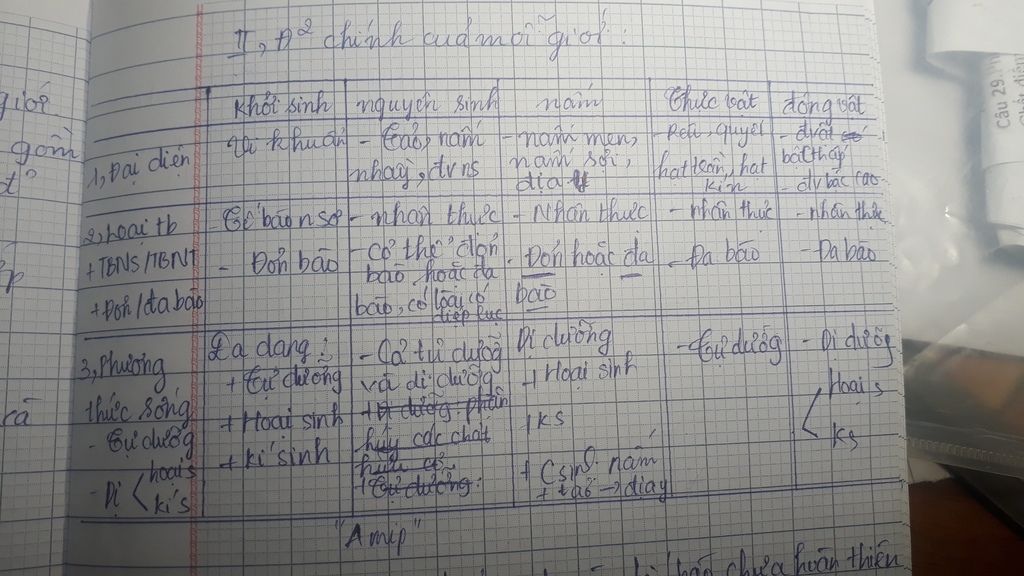 II, Đ² chính của mỗi giới:
giới
gồm
Khởi sinh nguyên sinh nấm Thực vật động vật
1, Đại diện
Vi khuẩn
- Tảo, nấm
nhày, đvns
- nấm men,
nấm sợi,
địa y
- Rêu, quyết
hạt trần, hạt
kín
- đvật
bậc thấp
- đv bậc cao
2, Loại tb
+ TBNS/TBNT
+ Đơn/đa bào
Tế bào n sơ
- Đơn bào
- nhân thực
- Có thể đơn
bào hoặc đa
bào, có loài có
diệp lục
- Nhân thực
- Đơn hoặc đa
bào
- nhân thực
- Đa bào
- nhân thực
- Đa bào
3, Phương
thức sống
- Tự dưỡng
- Dị < hoại s
kí s
Đa dạng:
+ Tự dưỡng
+ Hoại sinh
+ kí sinh
- Cả tự dưỡng
và dị dưỡng
+ Dị dưỡng phân
hủy các chất
hữu cơ
+ Tự dưỡng
Dị dưỡng
+ Hoại sinh
+ KS
+ Csinh nấm
+ tảo → địa y
- Tự dưỡng
- Dị dưỡng
< Hoại s
KS
"Amip"
bào chưa hoàn thiện
Câu 29.